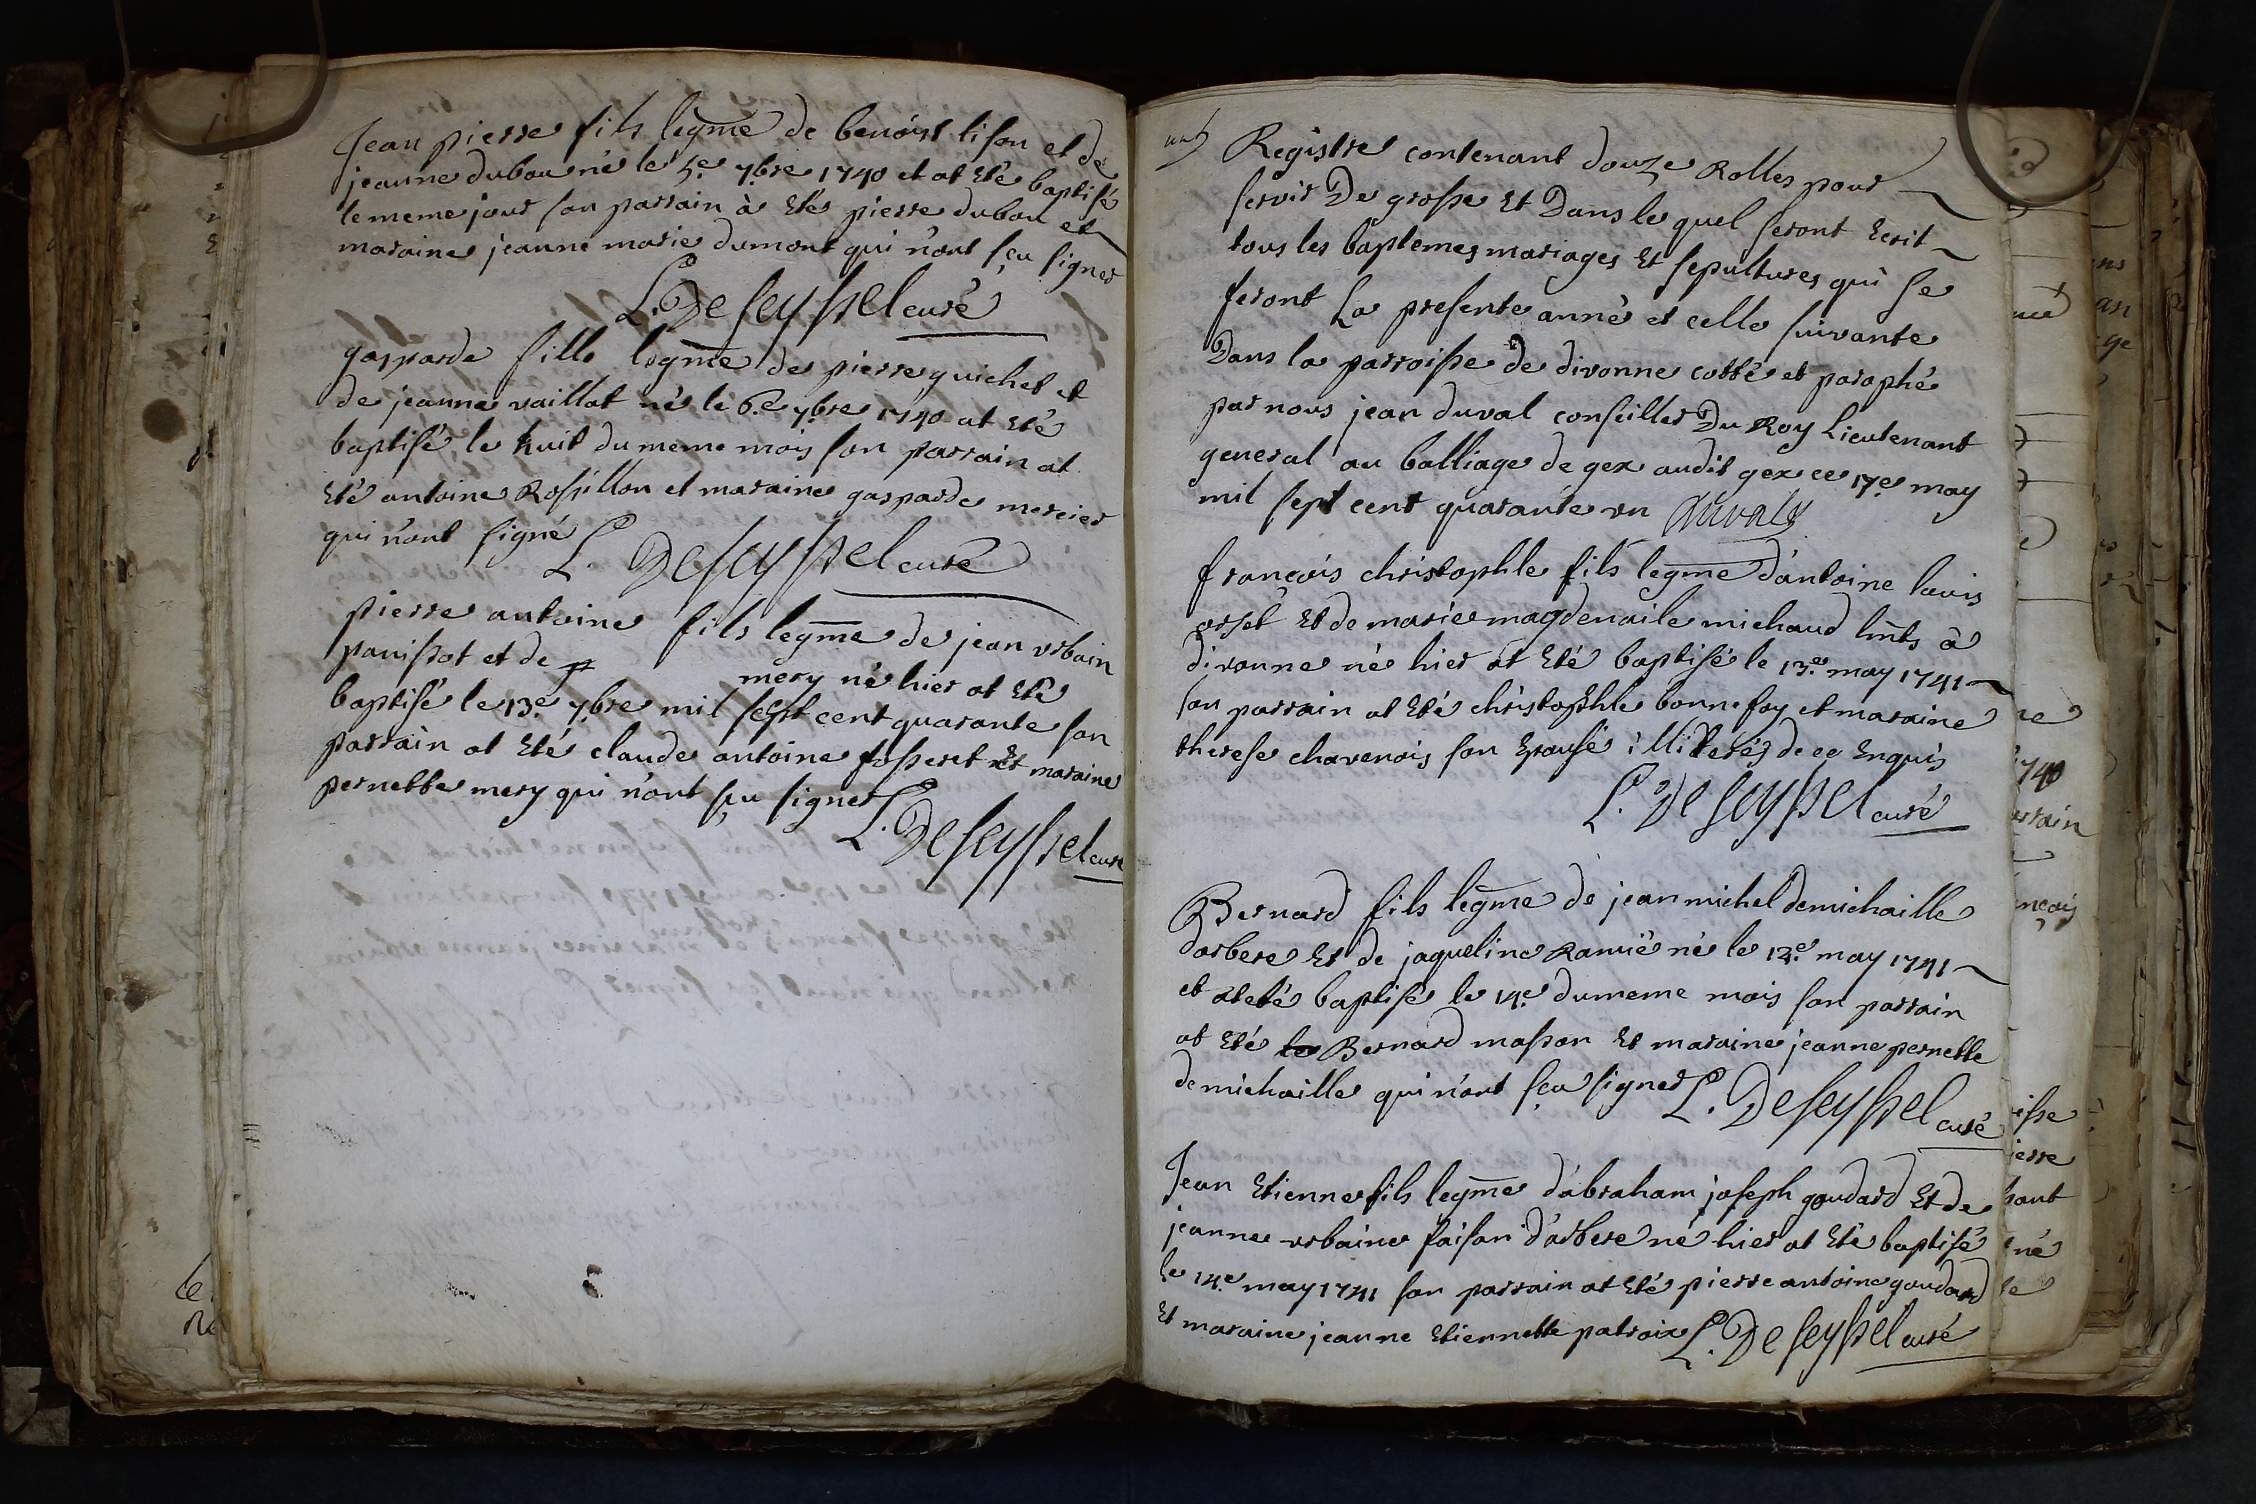 Jean pierre fils legme de benoist tison et de
jeanne dubou né le 5e 7bre 1740 et at Eté baptisé
le meme jour son parrain à Eté pierre dubou et
maraine jeanne marie dumont qui n'ont sçu signer
L. De seyssel curé
gasparde fille legme de pierre guichet et
de jeanne vaillot né le 6e 7bre 1740 at Eté
baptisé le huit du meme mois son parrain at
Eté antoine Rossillon et maraine gasparde mercier
qui n'ont signé
L. De seyssel curé
pierre antoine fils legme de jean urbain
panissot et de mery né hier at Eté
baptisé le 13e 7bre mil sept cent quarante son
parrain at Eté claude antoine fosseret Et maraine
pernette mery qui n'ont sçu signer
L. De seyssel curé
un
Registre contenant douze Rolles pour
servir De grosse Et Dans le quel seront Ecrit
tous les baptemes mariages Et sepultures qui se
feront La presente anné et celle suivante
Dans la parroisse de divonne cotté et paraphé
par nous jean duval conseiller Du Roy Lieutenant
general au balliage de gex audit gex ce 17e may
mil sept cent quarante un Duval
françois christophle fils legme d'antoine louis
orset Et de marie magdenaile michaud hnts à
divonne né hier at Eté baptisé le 13e may 1741
son parrain at Eté christophle bonnefoy et maraine
therese chavenois son Epousé illiterés de ce Enquis
L. De seyssel curé
Bernard fils legme de jean michel demichaille
darbere Et de jaqueline Ramié né le 12e may 1741
et at eté baptisé le 14e du meme mois son parrain
at Eté le Bernard masson Et maraine jeanne pernette
demichaille qui n'ont sçu signer L. De seyssel curé
Jean Etienne fils legme d'abraham joseph goudard Et de
jeanne urbaine faison d'arbere né hier at Eté baptisé
le 14e may 1741 son parrain at Eté pierre antoine goudard
Et maraine jeanne Etiennette patroix L. De seyssel curé